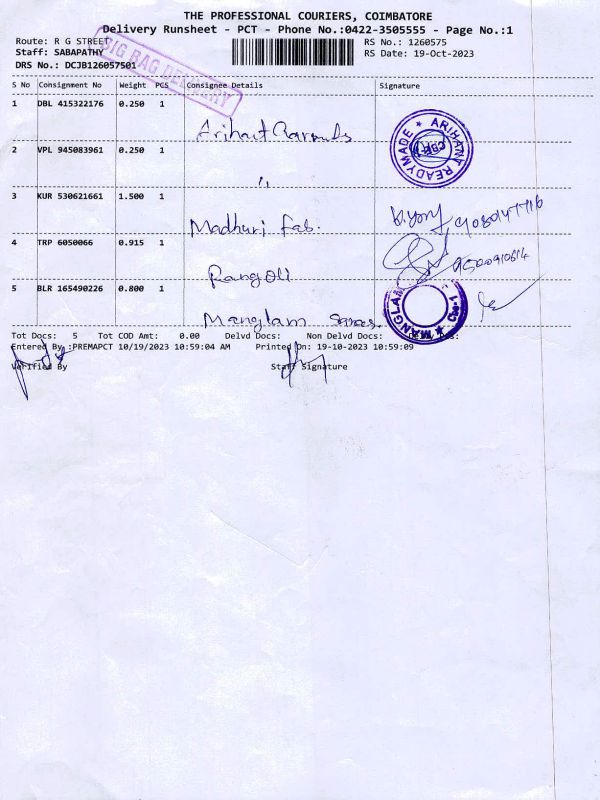 THE PROFESSIONAL COURIERS, COIMBATORE
Delivery Runsheet - PCT - Phone No.:0422-3505555 - Page No.:1
Route: R G STREET
RS No.: 1260575
Staff: SABAPATHY
RS Date: 19-Oct-2023
DRS No.: DCJB126057501
BIG BAG DELIVERY
S No Consignment No Weight PCS Consignee Details Signature
1 DBL 415322176 0.250 1 Arihant
ARIHANT READYMADE ★ CBE-1
2 VPL 945083961 0.250 1 "
3 KUR 530621661 1.500 1 Madhuri Fab.
4 TRP 6050066 0.915 1 Rangoli
5 BLR 165490226 0.800 1 Manglam
MANGLAM ★ Cbe-1
Tot Docs: 5 Tot COD Amt: 0.00 Delvd Docs: Non Delvd Docs:
Entered By :PREMAPCT 10/19/2023 10:59:04 AM Printed On: 19-10-2023 10:59:09
Verified By Staff Signature